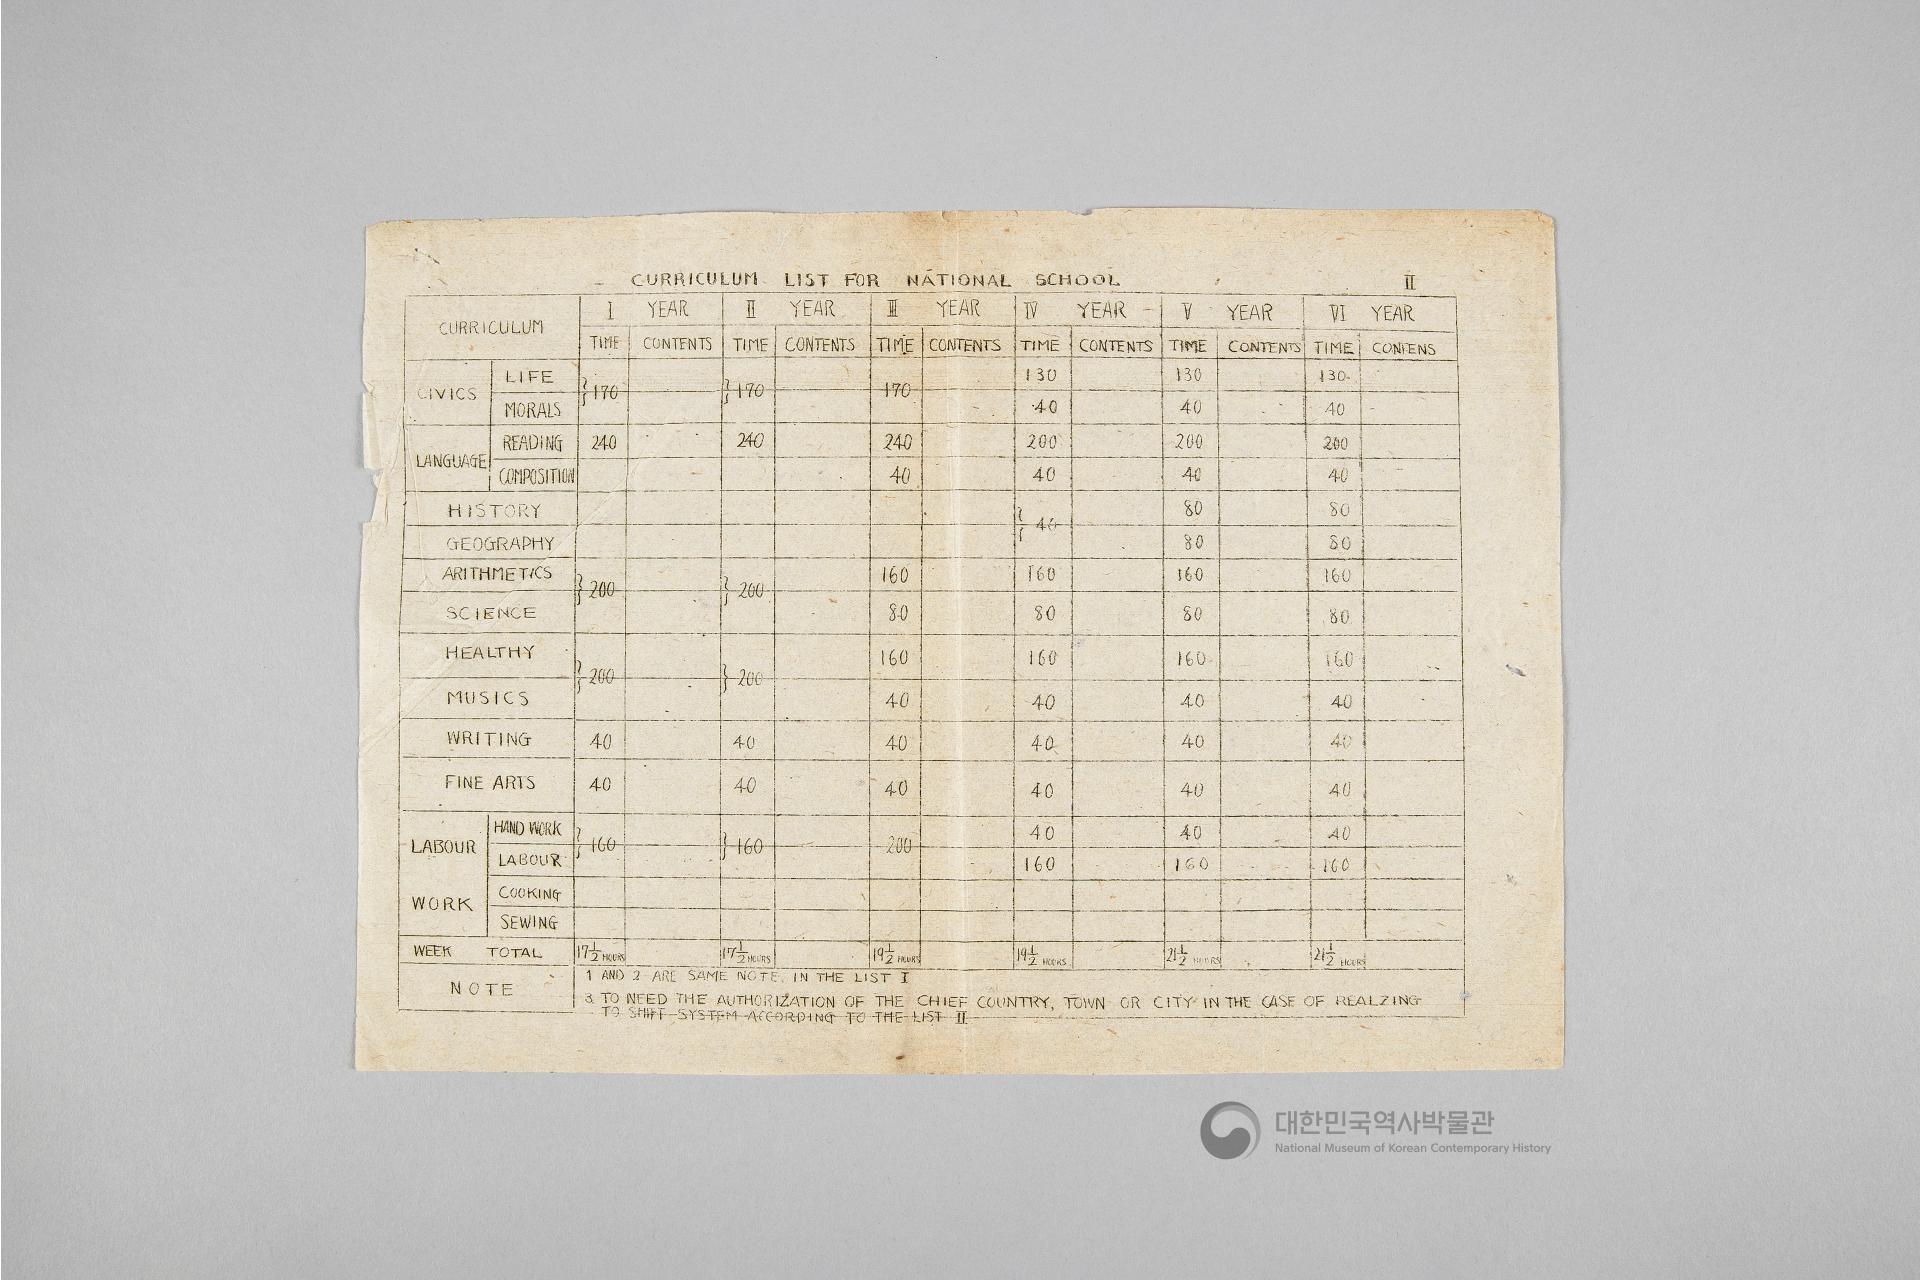 CURRICULUM LIST FOR NATIONAL SCHOOL II
CURRICULUM I YEAR II YEAR III YEAR IV YEAR V YEAR VI YEAR
TIME CONTENTS TIME CONTENTS TIME CONTENTS TIME CONTENTS TIME CONTENTS TIME CONTENS
CIVICS LIFE 170 170 170 130 130 130
MORALS 40 40 40
LANGUAGE READING 240 240 240 200 200 200
COMPOSITION 40 40 40 40
HISTORY 40 80 80
GEOGRAPHY 80 80
ARITHMETICS 200 200 160 160 160 160
SCIENCE 80 80 80 80
HEALTHY 200 200 160 160 160 160
MUSICS 40 40 40 40
WRITING 40 40 40 40 40 40
FINE ARTS 40 40 40 40 40 40
LABOUR WORK HAND WORK 160 160 200 40 40 40
LABOUR 160 160 160
COOKING
SEWING
WEEK TOTAL 17 1/2 HOURS 17 1/2 HOURS 19 1/2 HOURS 19 1/2 HOURS 21 1/2 HOURS 21 1/2 HOURS
NOTE 1 AND 2 ARE SAME NOTE, IN THE LIST I
3 TO NEED THE AUTHORIZATION OF THE CHIEF COUNTRY, TOWN OR CITY IN THE CASE OF REALZING
TO SHIFT SYSTEM ACCORDING TO THE LIST II
대한민국역사박물관
National Museum of Korean Contemporary History